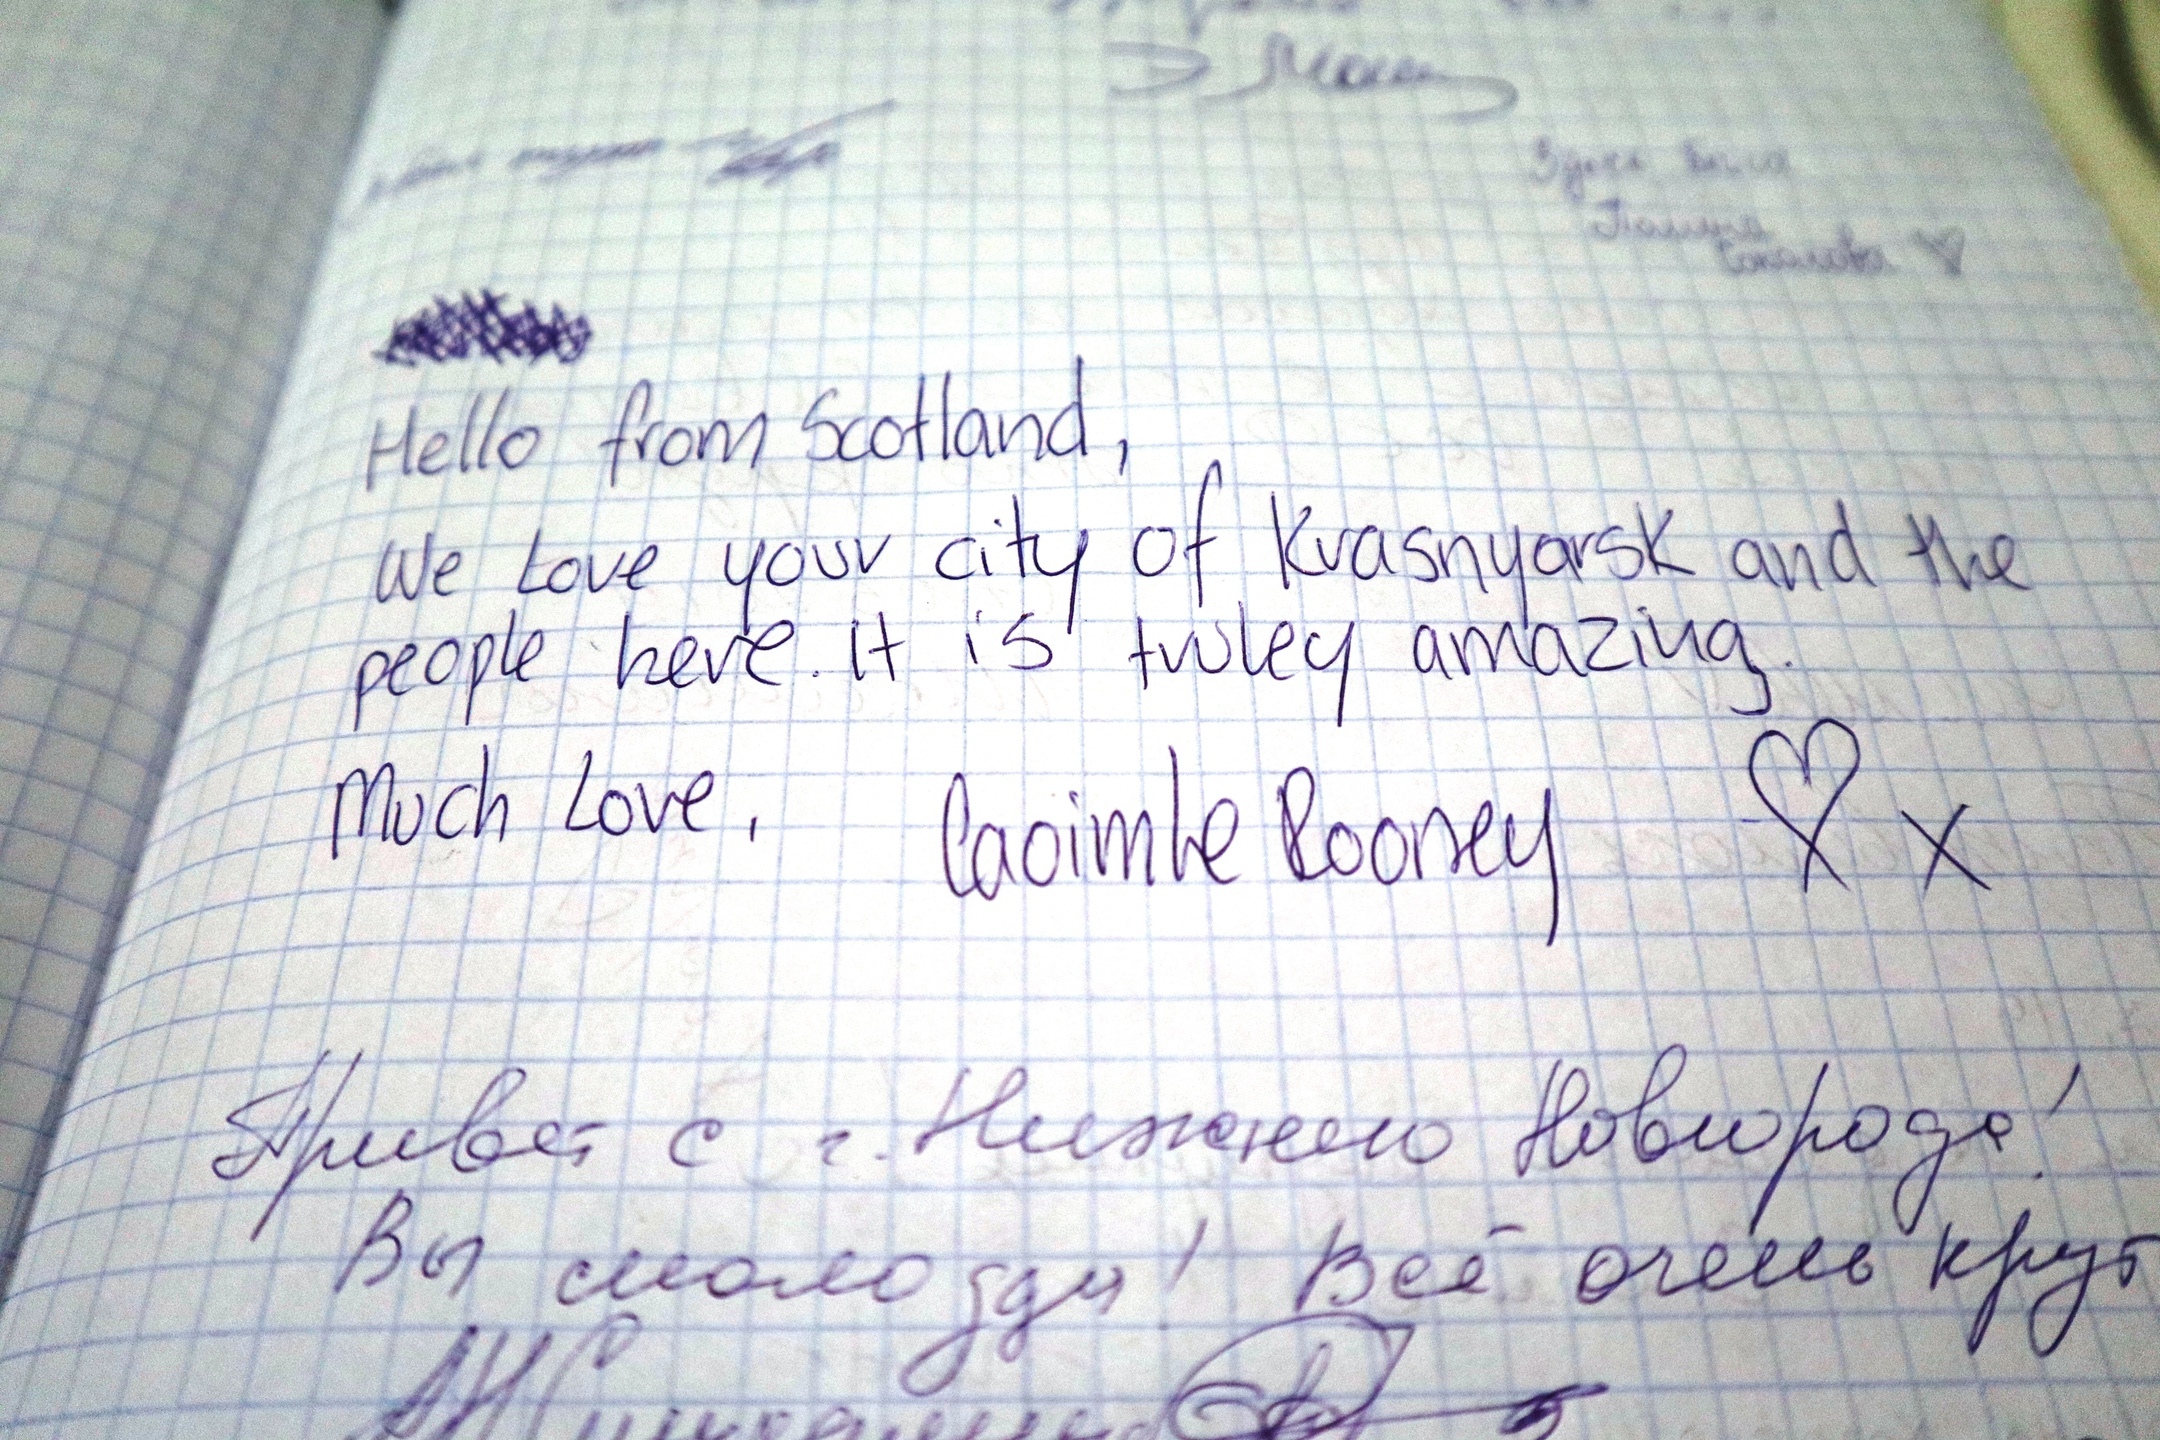 Здесь была
Полина
Соколова
Hello from Scotland,
We Love your city of Krasnyarsk and the
people here. It is truley amazing.
Much Love, Caoimhe Rooney x
Привет с г. Нижнего Новгорода!
Вы молодцы! Всё очень крут